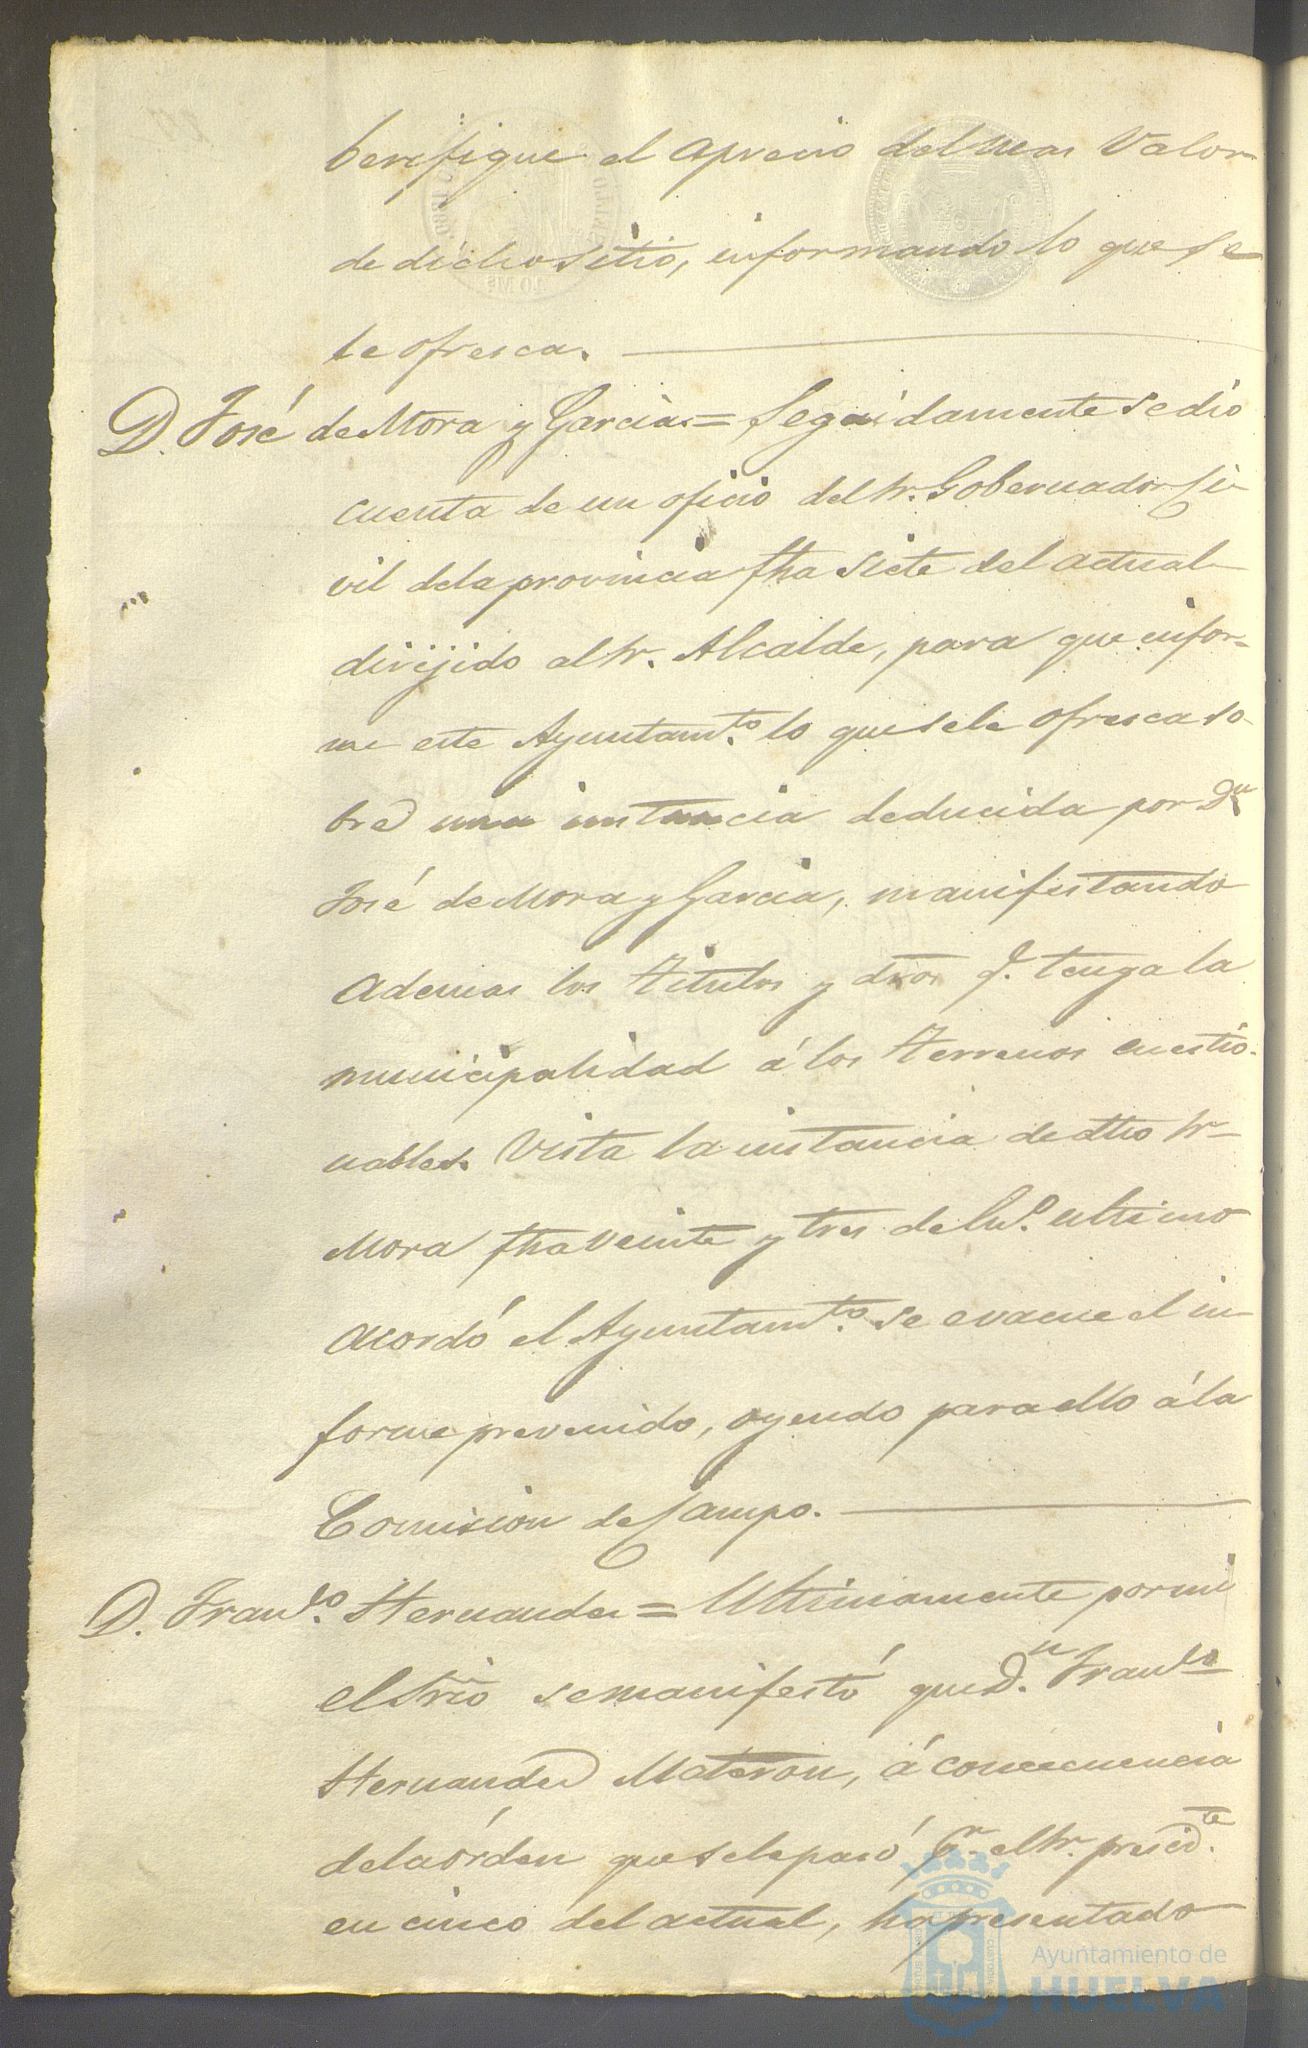 berifique el aprecio del mas Valor
de dicho sitio, informando lo que se
le ofresca.
D. José de Mora y Garcia = Seguidamente se dió
cuenta de un oficio del Sr. Gobernador Ci-
vil de la provincia fha siete del actual
dirijido al Sr. Alcalde, para que infor-
me este Ayuntamto. lo que se le ofresca so-
bre una instancia deducida por Dn
José de Mora y Garcia, manifestando
Ademas los Titulos y dros q. tenga la
municipalidad á los terrenos cuestio-
nables. Vista la instancia de dho Sr
Mora fha veinte y tres de En.o ultimo
Acordó el Ayuntamto. se evacue el in-
forme prevenido, oyendo para ello á la
Comision de Campo.
D. Franco. Hernandez = Ultimamente por mi
el Srio se manifestó que Dn. Franco
Hernandez Materon, á concecuencia
de la órden que se le pasó pr. el Sr. presidte.
en cinco del actual, ha presentado
Ayuntamiento de
HUELVA